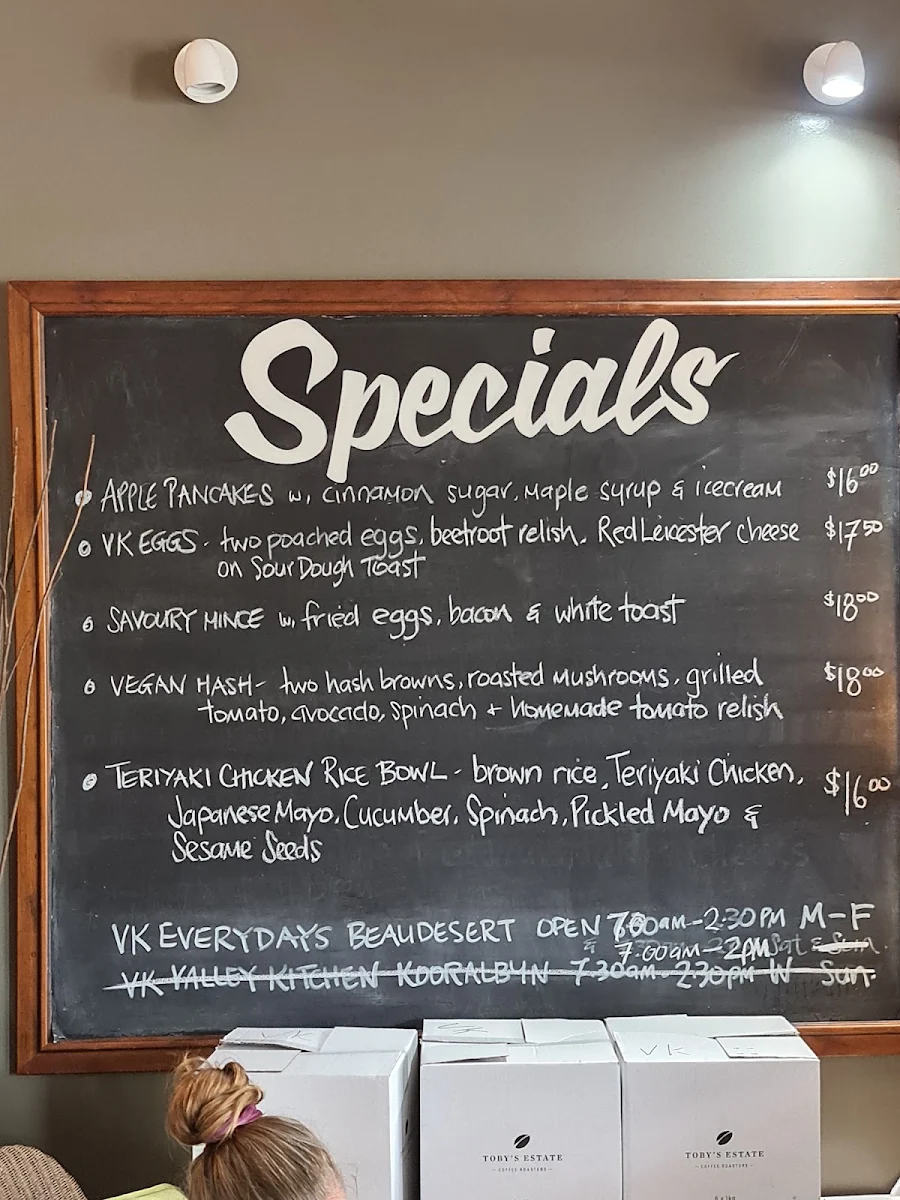 Specials
APPLE PANCAKES w, cinnamon sugar, Maple syrup & icecream $16.00
VK EGGS - two poached eggs, beetroot relish, Red Leicester Cheese $17.50
on SourDough Toast
SAVOURY MINCE w, fried eggs, bacon & white toast $18.00
VEGAN HASH - two hash browns, roasted Mushrooms, grilled $18.00
tomato, avocado, spinach + homemade tomato relish
TERIYAKI CHICKEN RICE BOWL - brown rice, Teriyaki Chicken, $16.00
Japanese Mayo, Cucumber, Spinach, Pickled Mayo &
Sesame Seeds
VK EVERYDAYS BEAUDESERT OPEN 7:00am-2:30PM M-F
& 7.00am - 2pm Sat & Sun
VK VALLEY KITCHEN KOORALBYN 7.30am - 2:30pm W - Sun
VK
VK
TOBY'S ESTATE
COFFEE ROASTERS
TOBY'S ESTATE
COFFEE ROASTERS
6 x 1kg